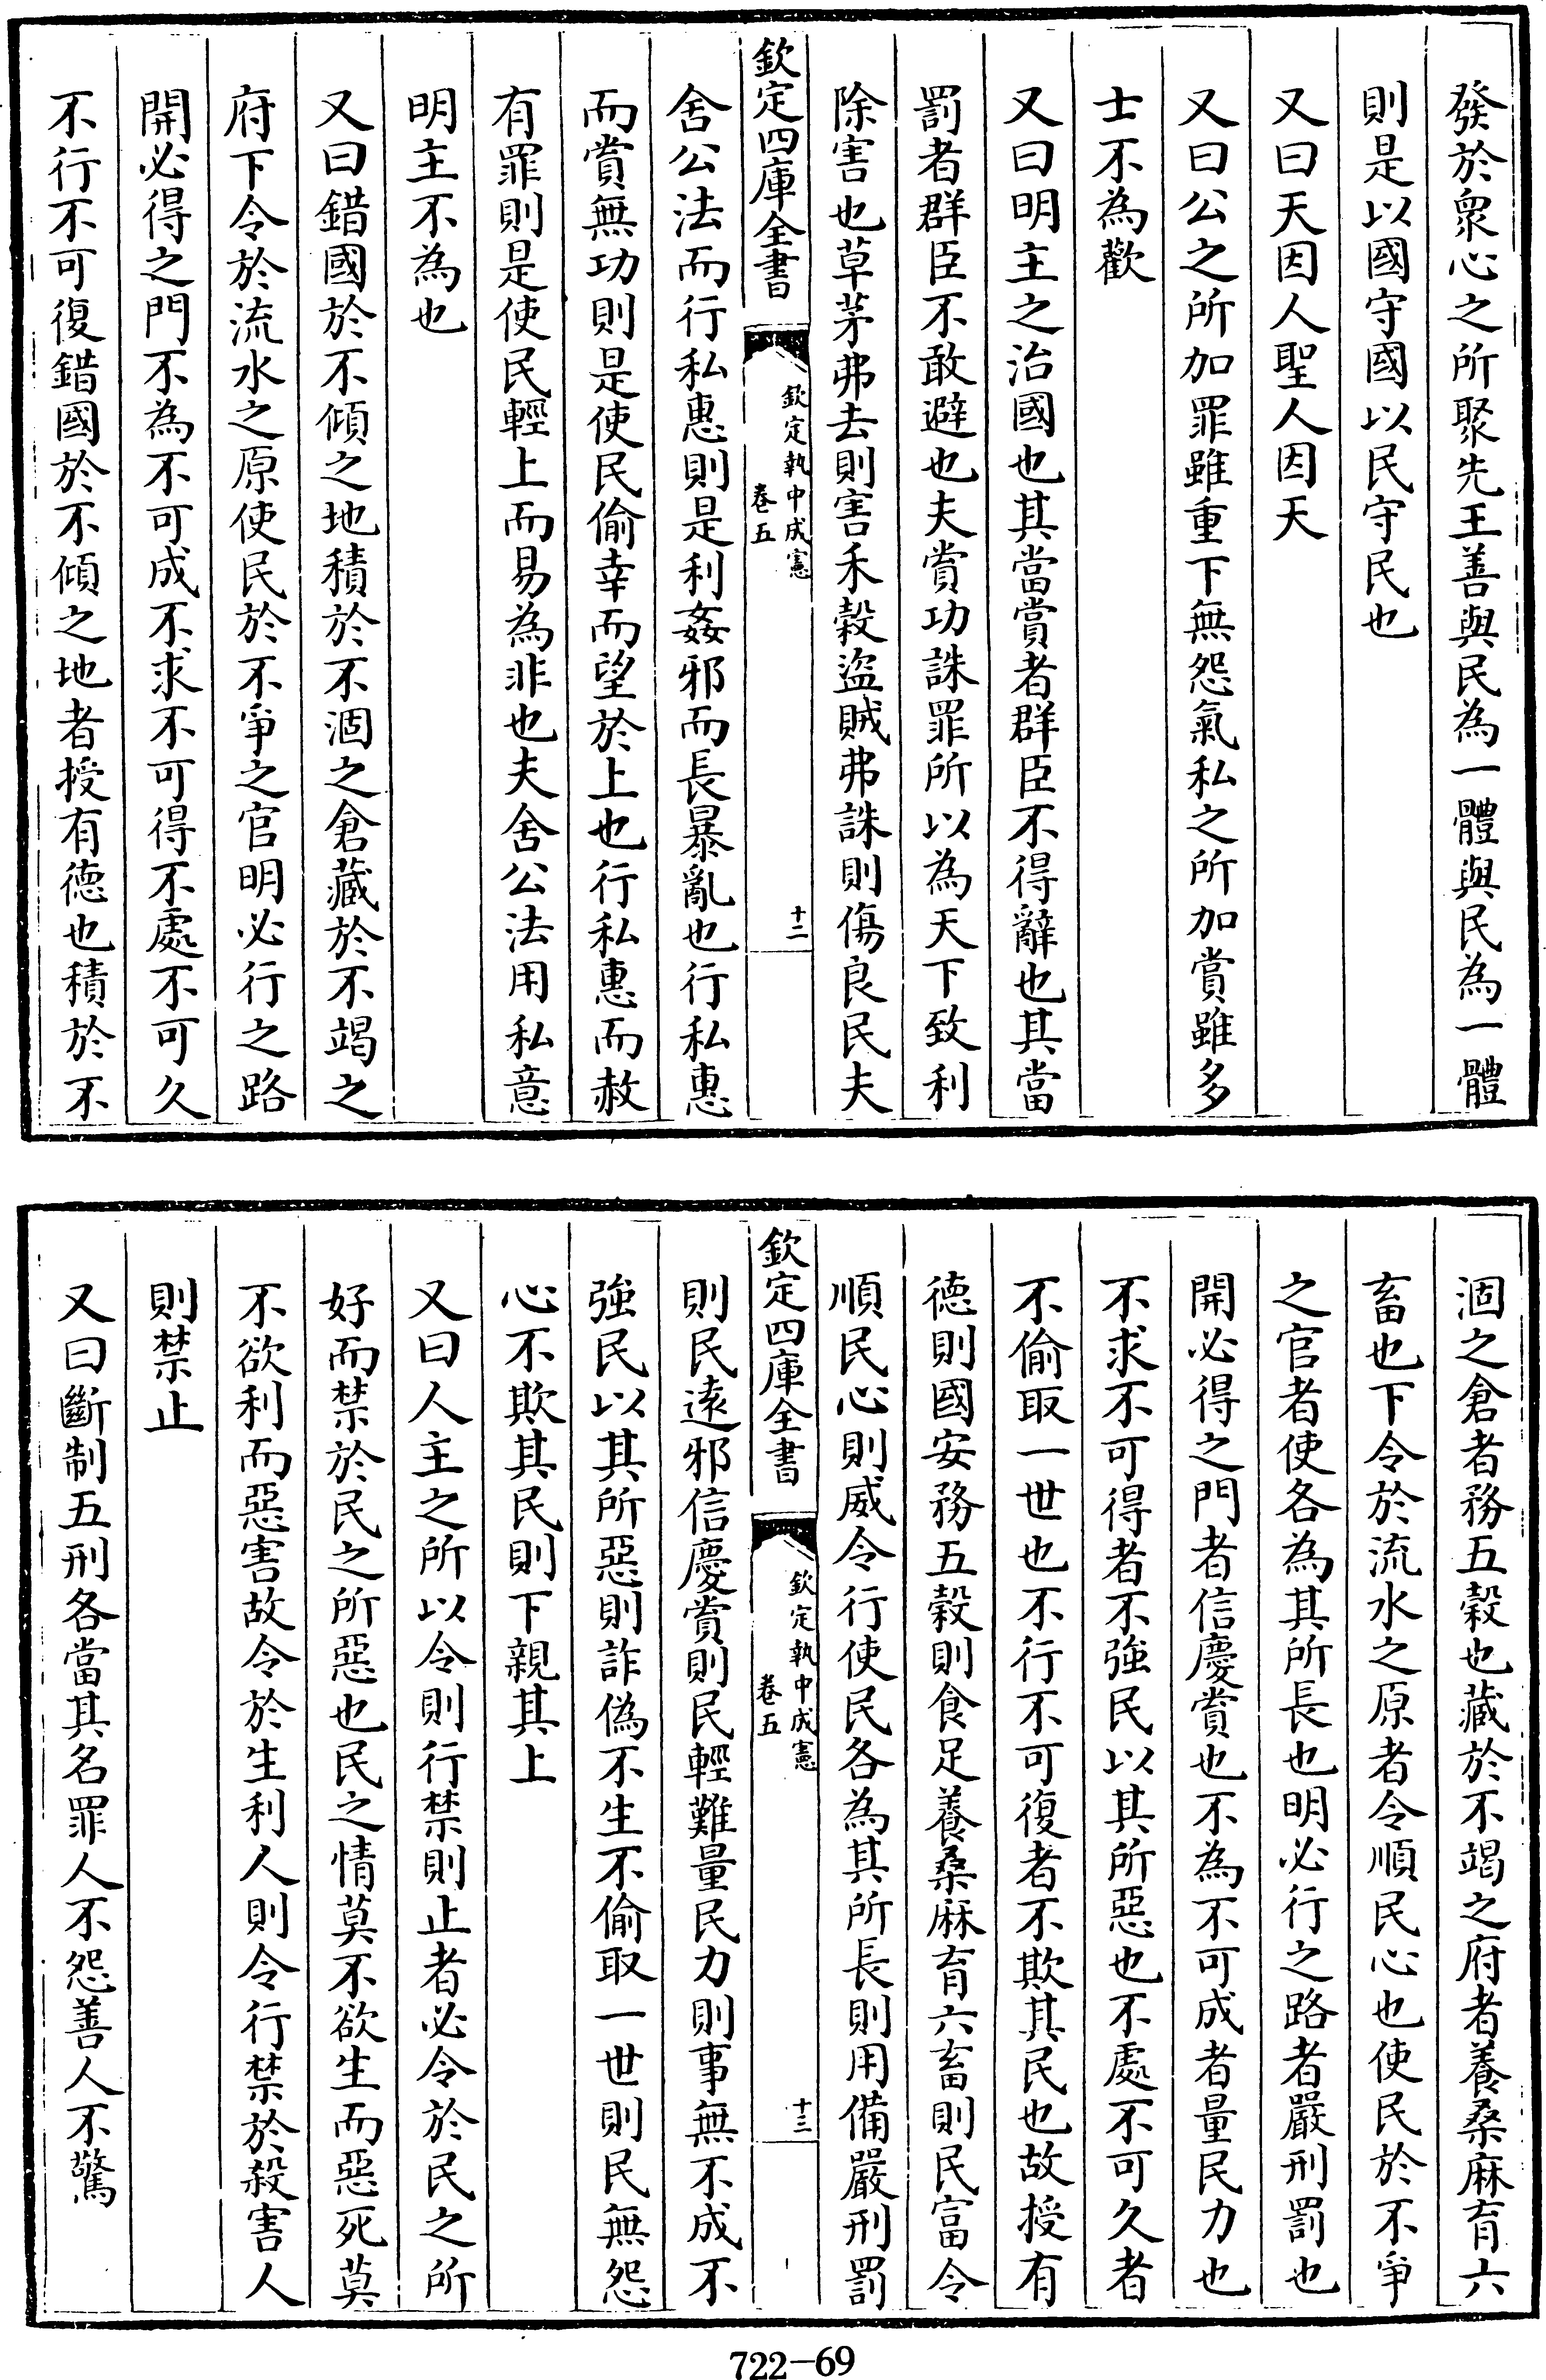 發於衆心之所聚先王善與民為一體與民為一體
則是以國守國以民守民也
又曰天因人聖人因天
又曰公之所加罪雖重下無怨氣私之所加賞雖多
士不為歡
又曰明主之治國也其當賞者群臣不得辭也其當
罰者群臣不敢避也夫賞功誅罪所以為天下致利
除害也草茅弗去則害禾穀盜賊弗誅則傷良民夫
欽定四庫全書
欽定執中成憲
卷五
十二
舍公法而行私惠則是利姦邪而長暴亂也行私惠
而賞無功則是使民偷幸而望於上也行私惠而赦
有罪則是使民輕上而易為非也夫舍公法用私意
明主不為也
又曰錯國於不傾之地積於不涸之倉藏於不竭之
府下令於流水之原使民於不爭之官明必行之路
開必得之門不為不可成不求不可得不處不可久
不行不可復錯國於不傾之地者授有德也積於不
涸之倉者務五穀也藏於不竭之府者養桑麻育六
畜也下令於流水之原者令順民心也使民於不爭
之官者使各為其所長也明必行之路者嚴刑罰也
開必得之門者信慶賞也不為不可成者量民力也
不求不可得者不強民以其所惡也不處不可久者
不偷取一世也不行不可復者不欺其民也故授有
德則國安務五穀則食足養桑麻育六畜則民富令
順民心則威令行使民各為其所長則用備嚴刑罰
欽定四庫全書
欽定執中成憲
卷五
十三
則民遠邪信慶賞則民輕難量民力則事無不成不
強民以其所惡則詐偽不生不偷取一世則民無怨
心不欺其民則下親其上
又曰人主之所以令則行禁則止者必令於民之所
好而禁於民之所惡也民之情莫不欲生而惡死莫
不欲利而惡害故令於生利人則令行禁於殺害人
則禁止
又曰斷制五刑各當其名罪人不怨善人不驚
722—69